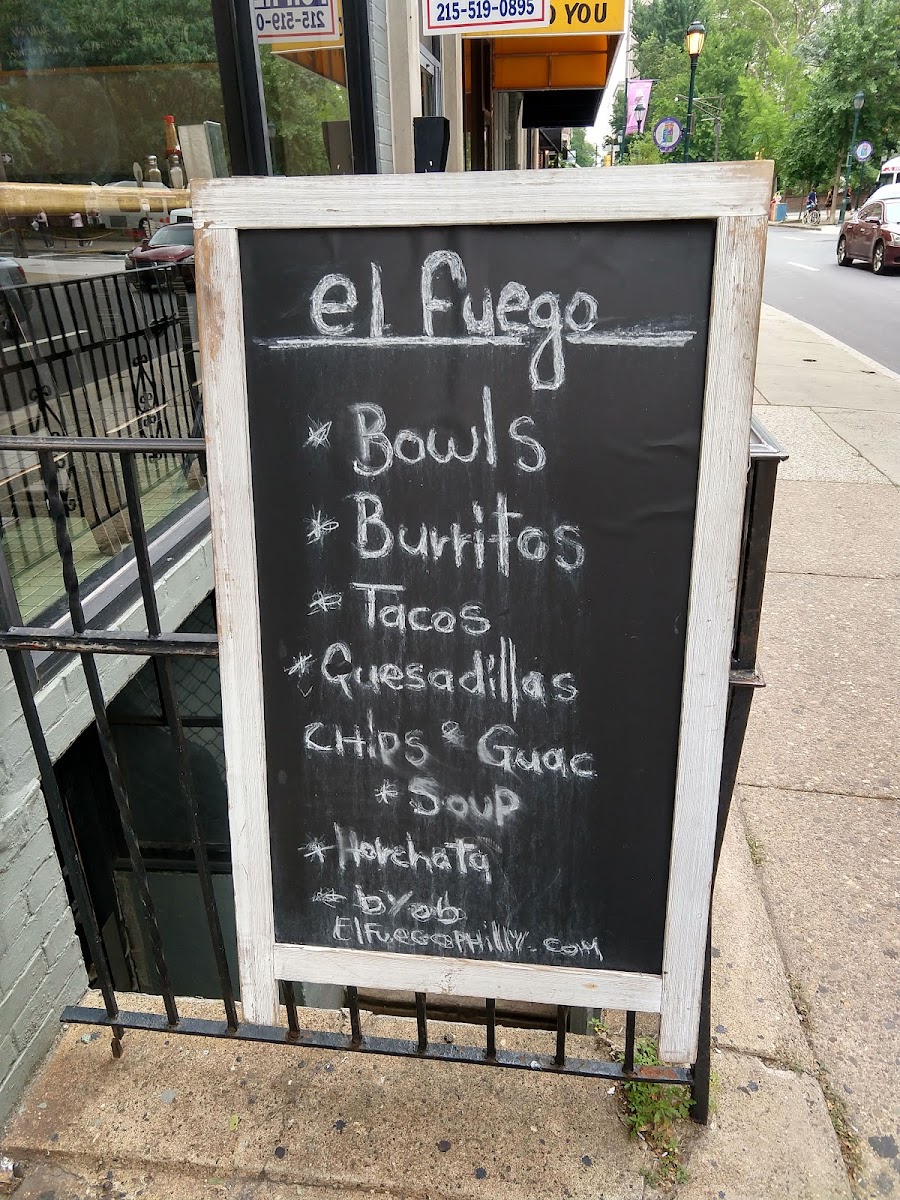 215-519-0895
O YOU
215-519-0
el Fuego
* Bowls
* Burritos
* Tacos
* Quesadillas
CHIPS & Guac
* Soup
* Horchata
* byob
ElFuegoPHillY.com